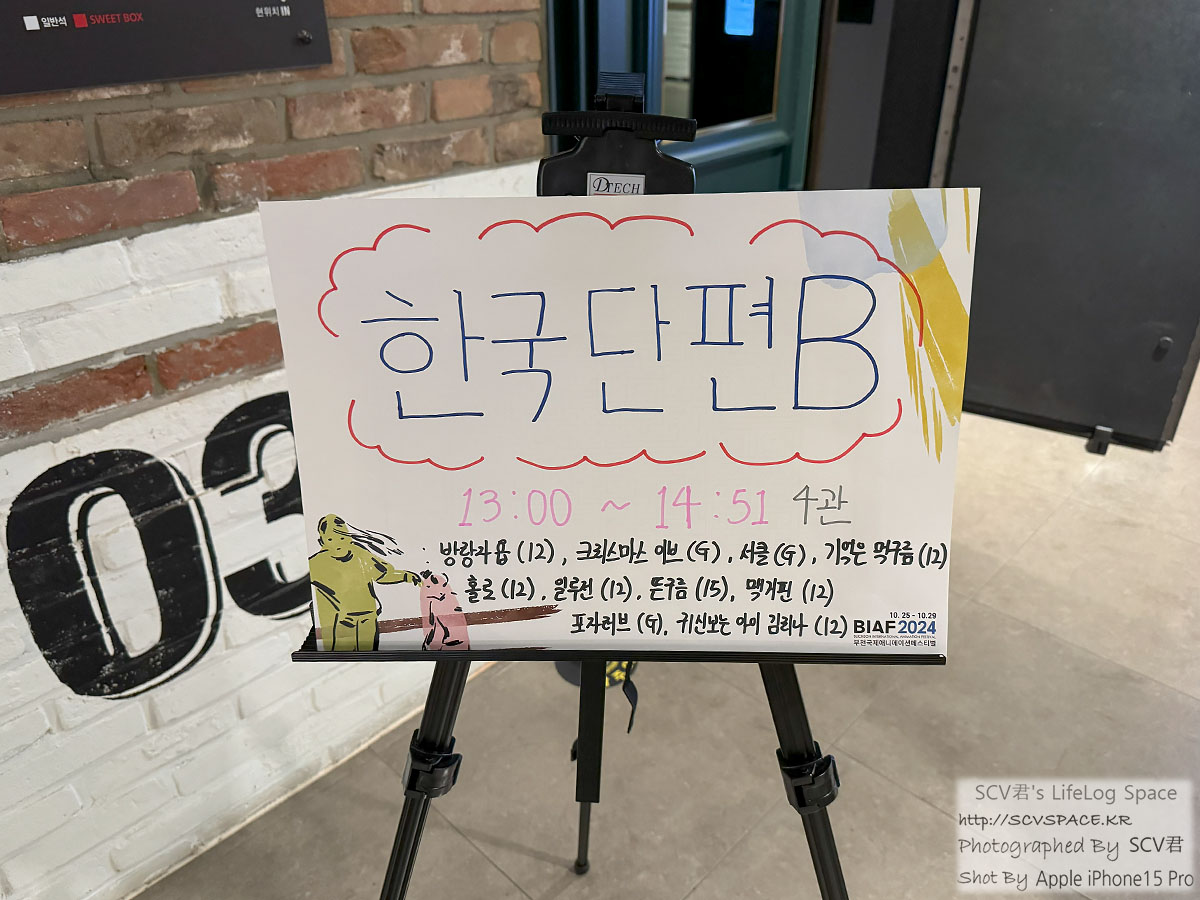 일반석 SWEET BOX
현위치 IN
DTECH
한국단편B
13:00 ~ 14:51 4관
(12), 크리스마스 이브 (G), 서클 (G), 기억은 먹구름 (12)
홀로 (12), 일루전 (12), 뜬구름 (15), 맥거핀 (12)
포자러브 (G), 귀신보는 아이 김리나 (12)
10. 25 - 10. 29
BIAF 2024
BUCHEON INTERNATIONAL ANIMATION FESTIVAL
부천국제애니메이션페스티벌
03
SCV君's LifeLog Space
http://SCVSPACE.KR
Photographed By SCV君
Shot By Apple iPhone15 Pro